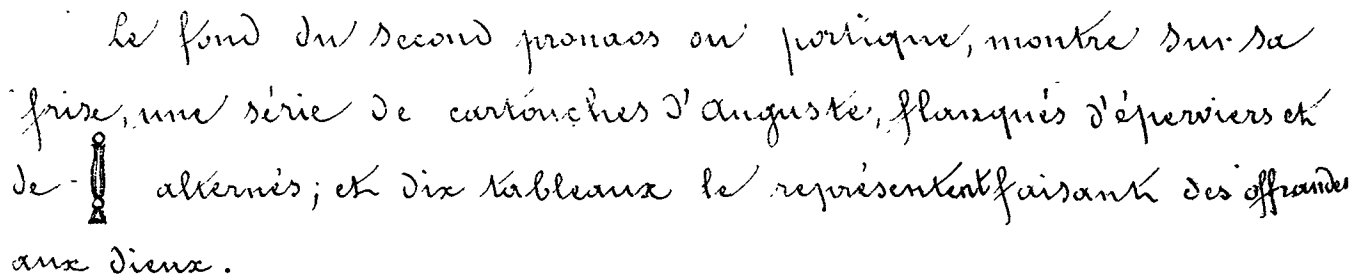 Le fond du second pronaos ou portique, montre sur sa
frise, une série de cartouches d'Auguste, flanqués d'éperviers et
de alternés; et dix tableaux le représentent faisant des offrandes
aux dieux.